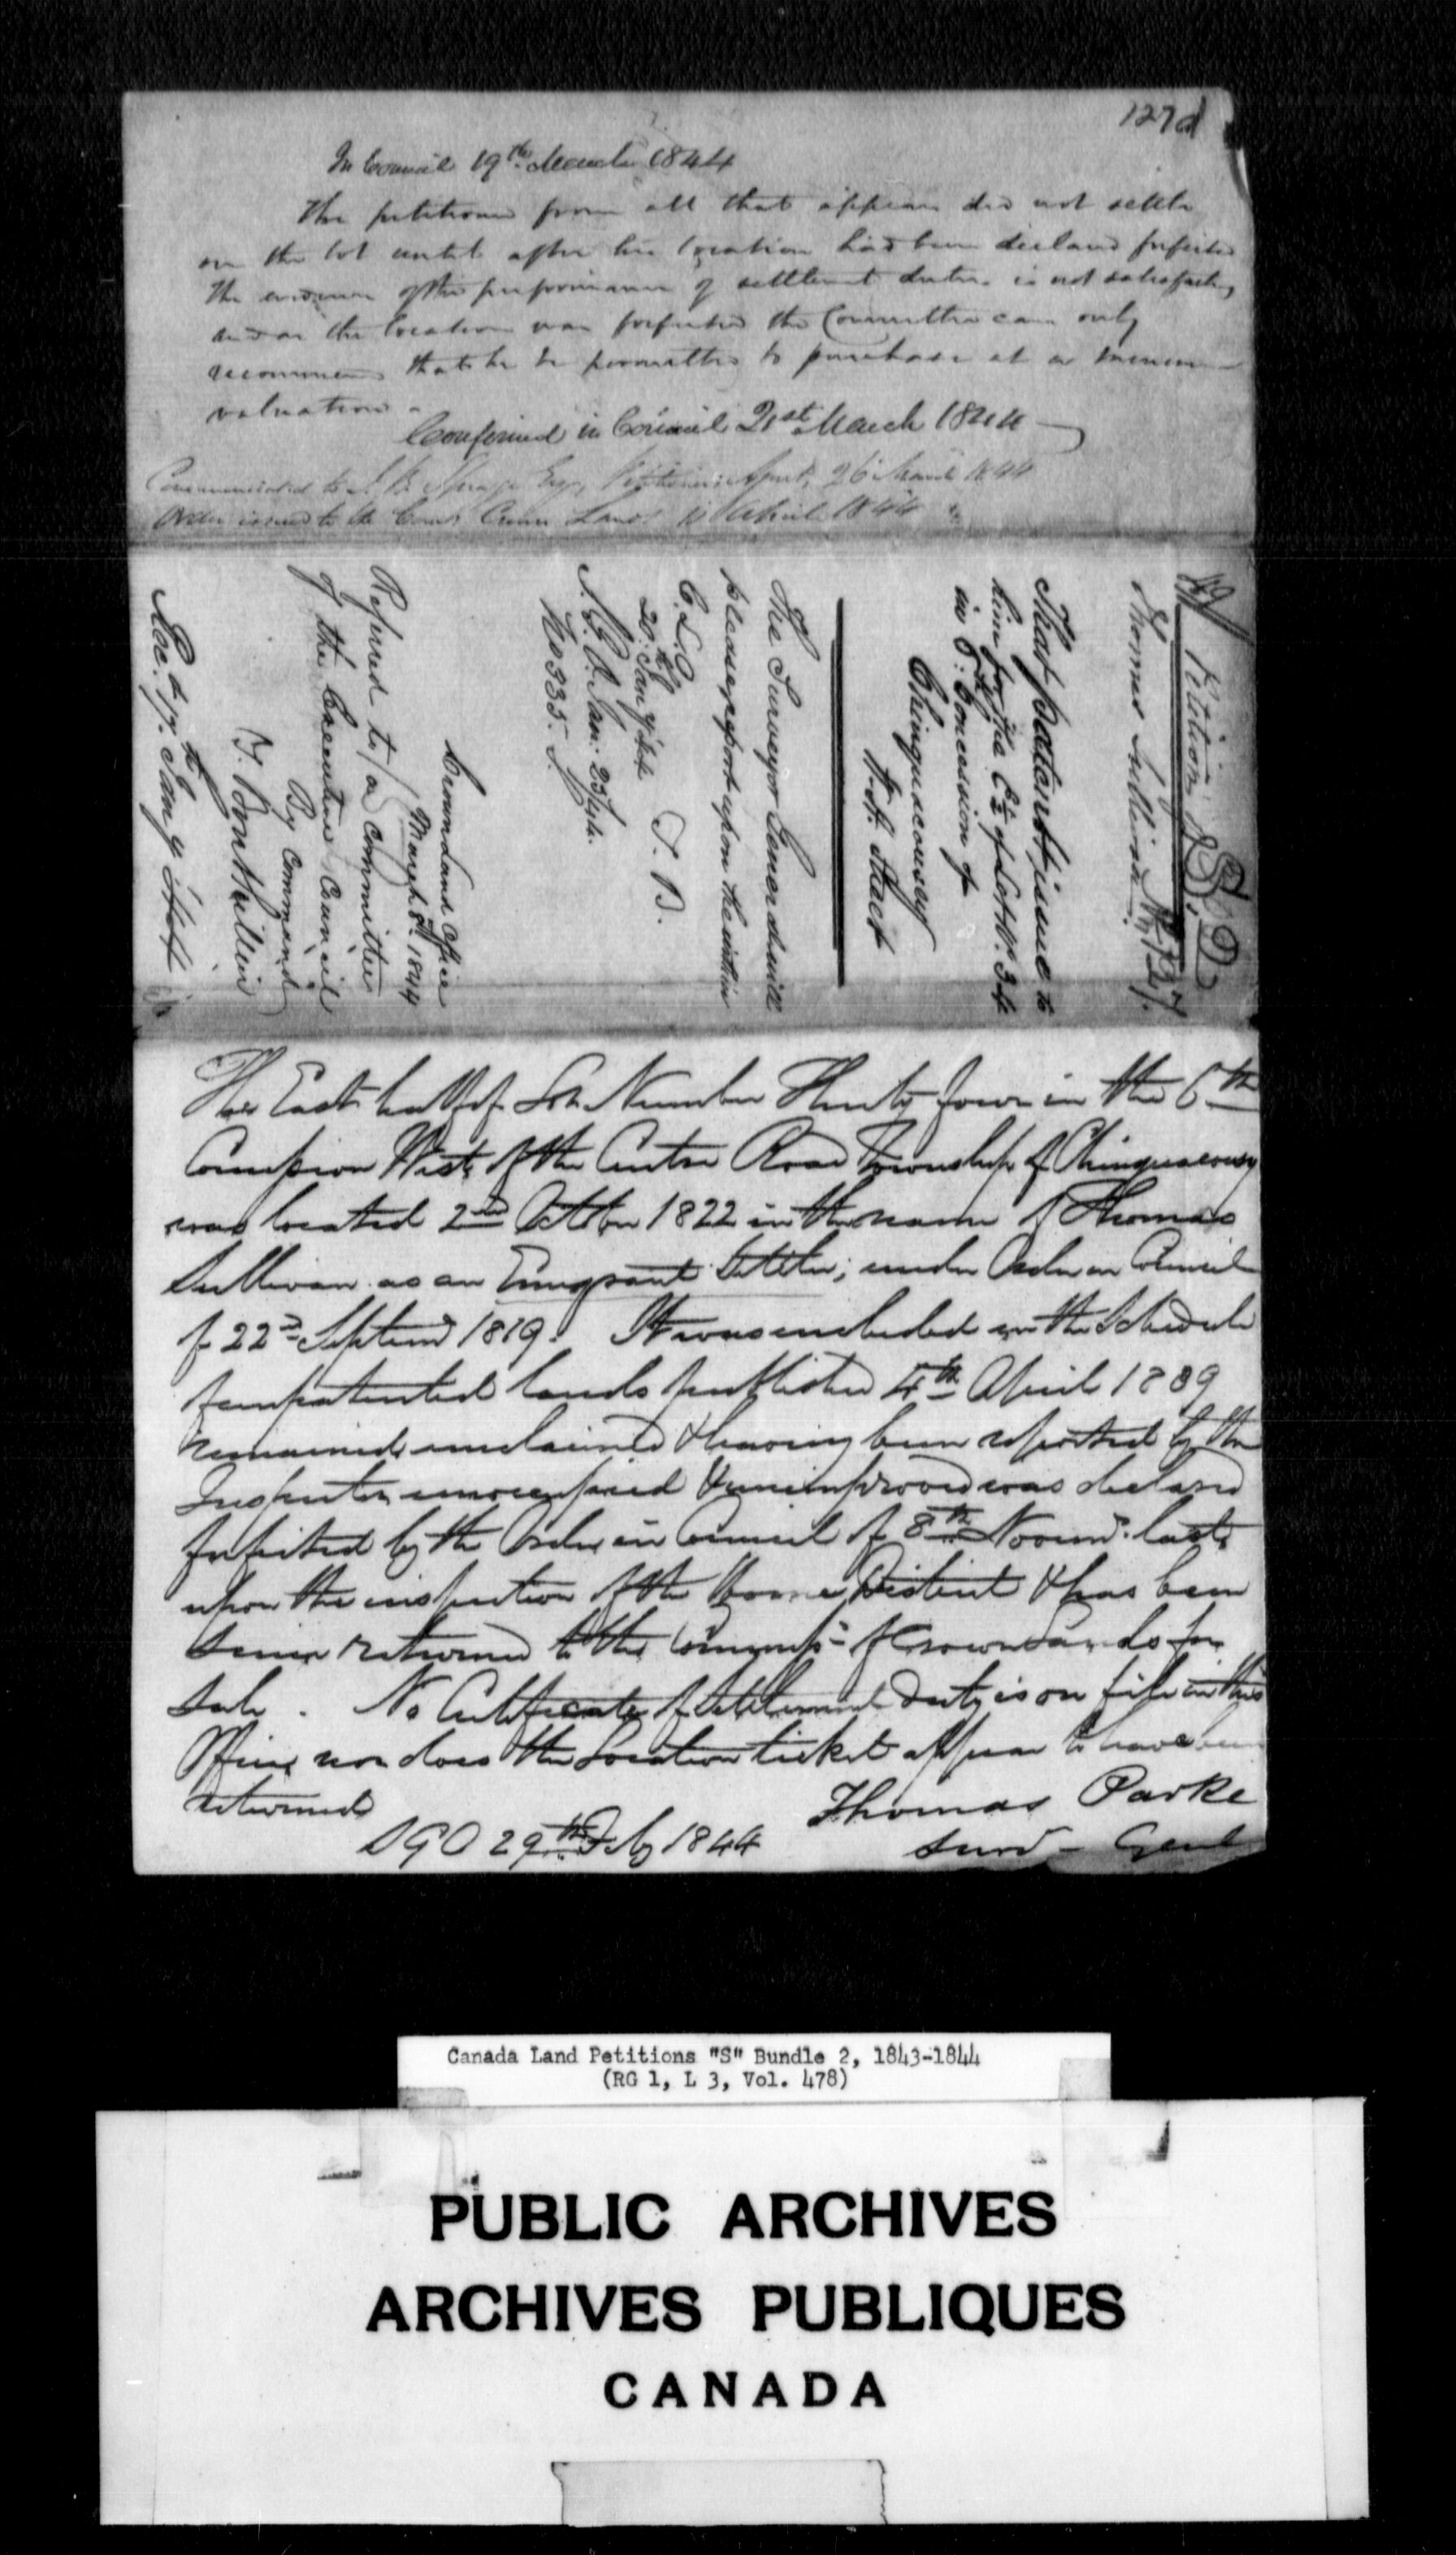 127d
In Council 19th March 1844
The petitioner from all that appears did not settle
on the lot until after his location had been declared forfeited
The evidence of the performance of settlement duties is not satisfactory
and as the location was forfeited the Committee can only
recommend that he be permitted to purchase at a
valuation -
Confirmed in Council 21st March 1844
Communicated to Esqr, Petitioners Agent, 26 March 1844
Order issued to the Crown Lands April 1844
Petition S.D.
Thomas Sullivan No 127.
That patent issue to
him for the E½ of Lot No. 34
in 6th Concession of
Chinguacousy
The Surveyor General will
please report upon the within
T. B.
C.L.O
20th Jany 44
S.G.O. Jan. 23/44.
No 335.
Crown Land Office
March 8th 1844
Referred to a Committee
of the Executive Council
By Command
T. Bouthillier
Rec. 17th Jany 1844
The East half of Lot Number Thirty four in the 6th
Concession West of the Centre Road Township of Chinguacousy
was located 2nd October 1822 in the name of Thomas
Sullivan as an Emigrant Settler; under Order in Council
of 22nd Septemr 1819. It was included in the Schedule
of unpatented lands published 4th April 1839
remained unclaimed & having been reported by the
Inspector unoccupied & unimproved was declared
forfeited by the Order in Council of 8th Novemr. last
upon the inspection of the Home District & has been
since returned to the Commr of Crown Lands for
Sale. No Certificate of Settlement Duty is on file in this
Office nor does the Location ticket appear to have been
returned
Thomas Parke
SGO 29th Feby 1844
Surv - Genl
Canada Land Petitions "S" Bundle 2, 1843-1844
(RG 1, L 3, Vol. 478)
PUBLIC ARCHIVES
ARCHIVES PUBLIQUES
CANADA